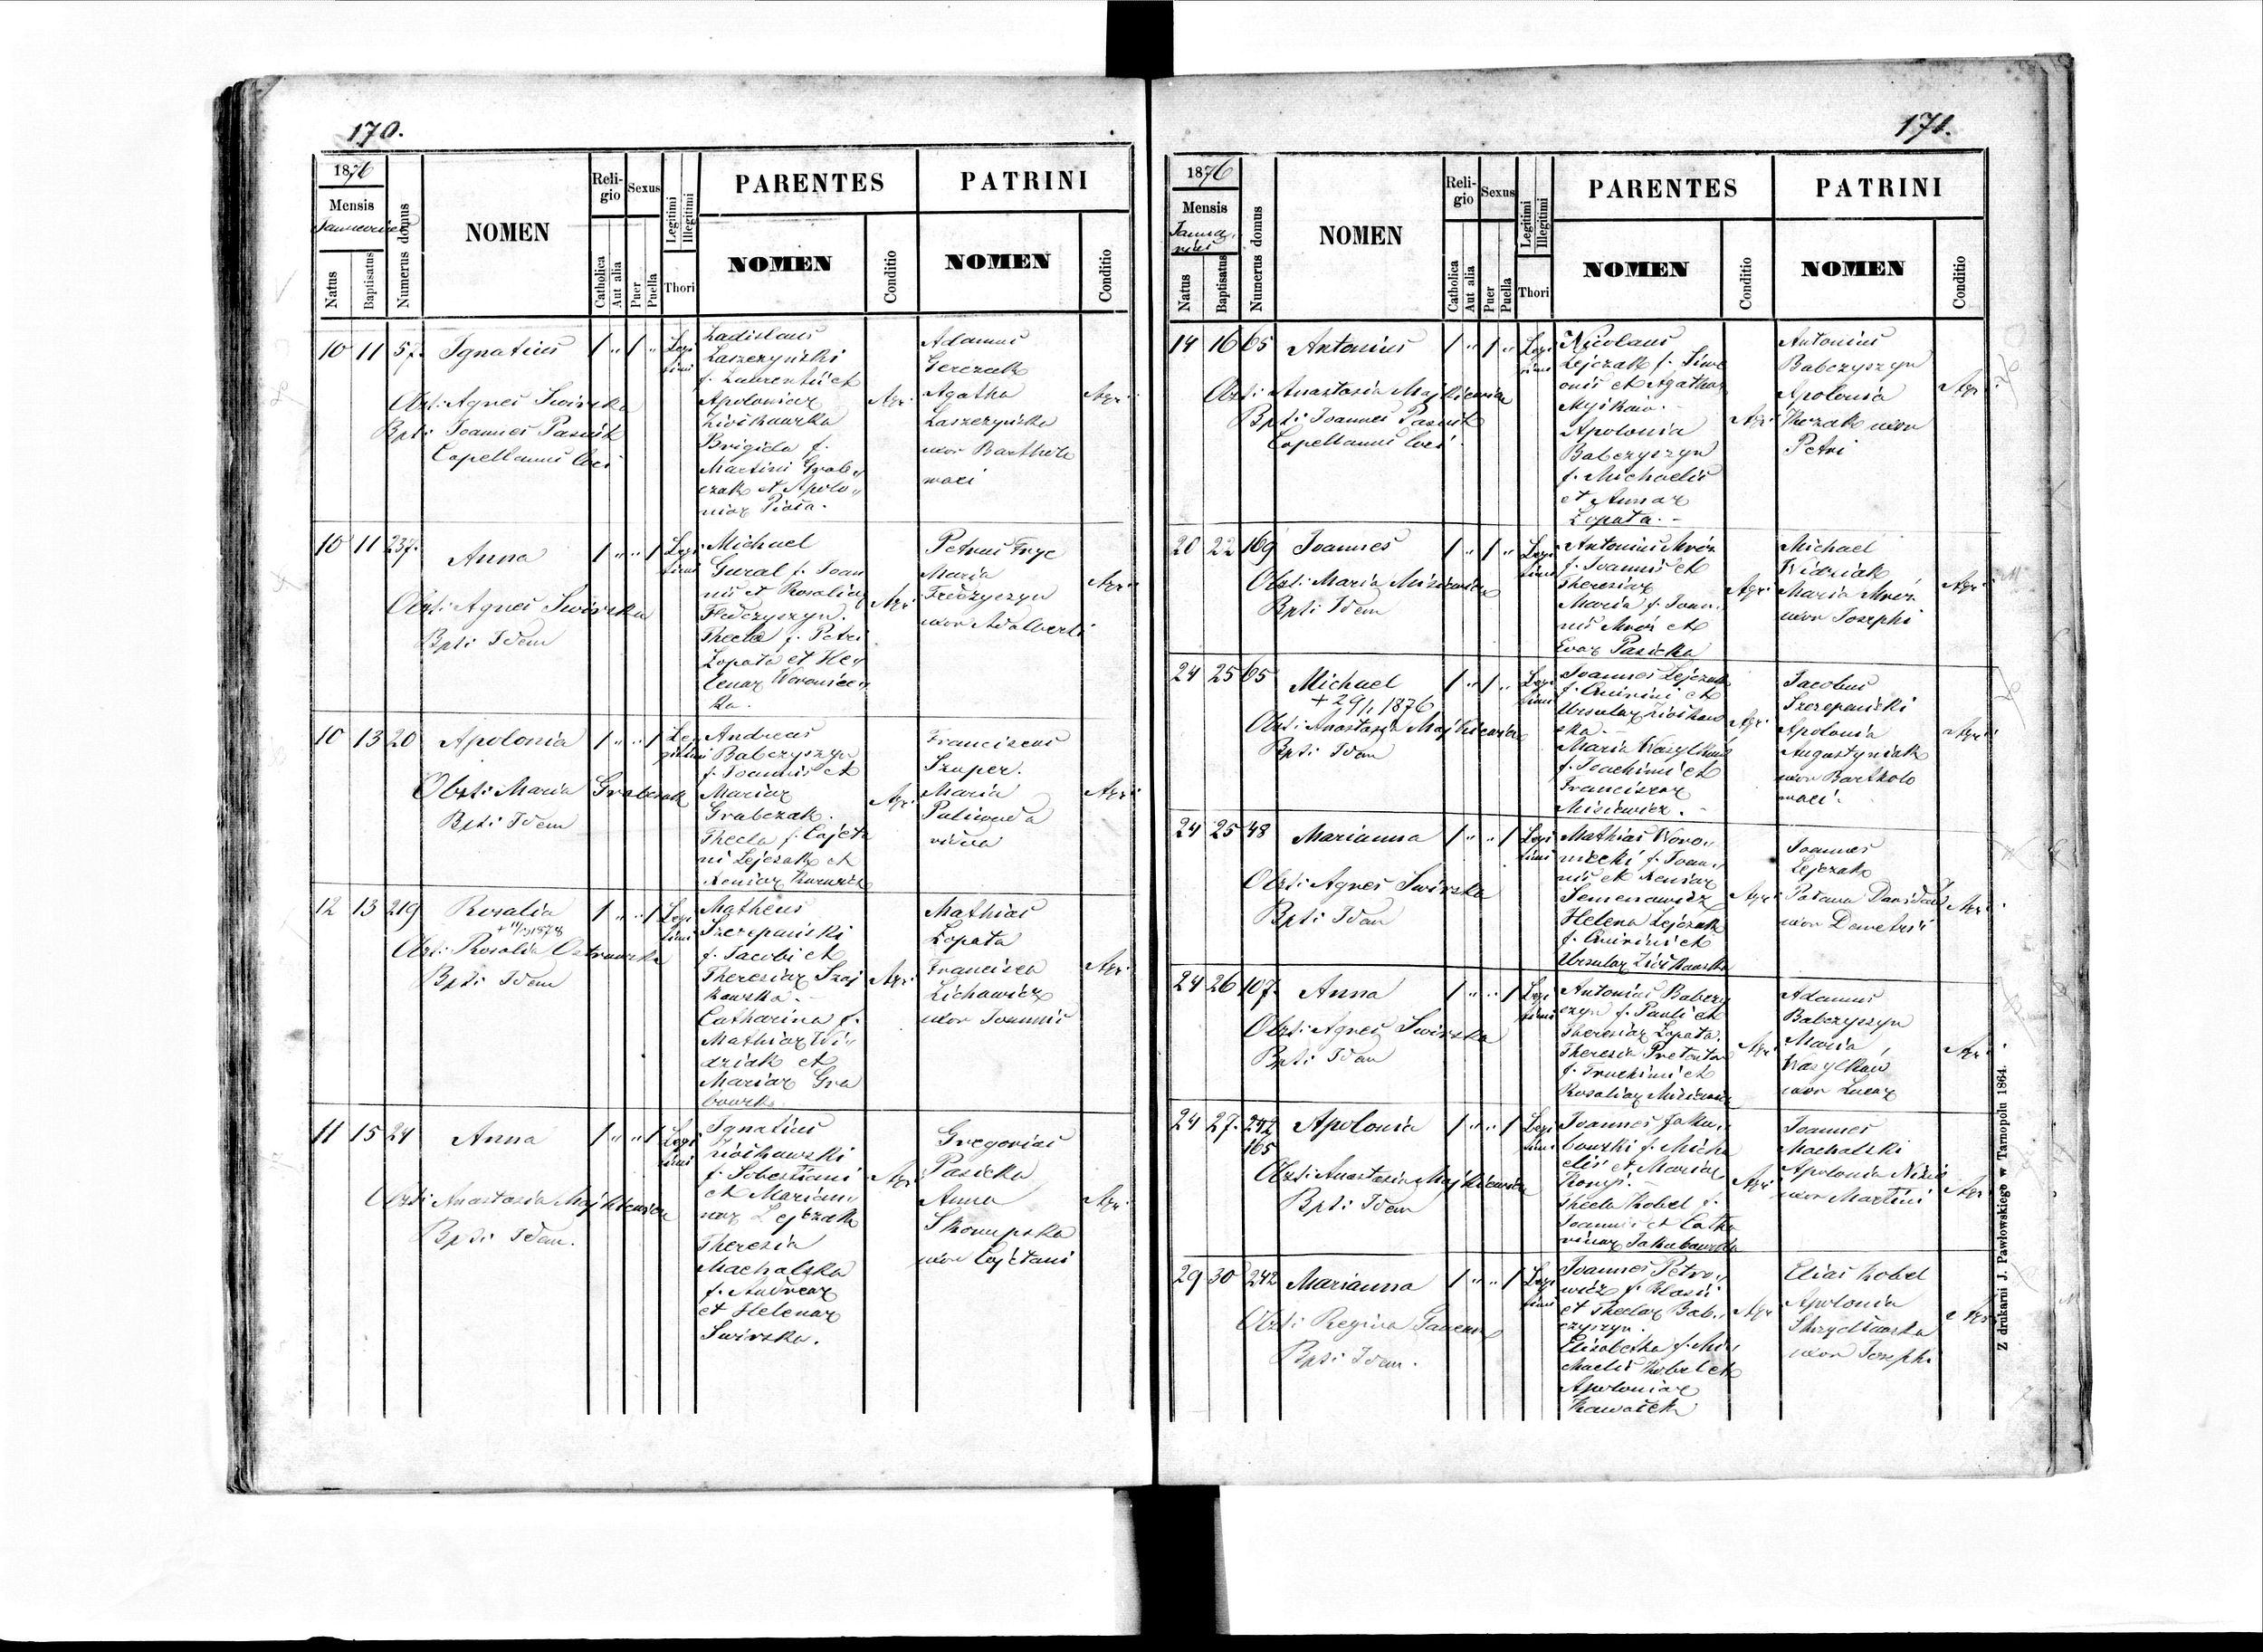 170.
1876
Mensis
Januarius
Natus
Baptisatus
Numerus domus
NOMEN
Reli-
gio
Catholica
Aut alia
Sexus
Puer
Puella
Legitimi
Illegitimi
Thori
PARENTES
NOMEN
Conditio
PATRINI
NOMEN
Conditio
10 11 57. Ignatius 1 " 1 " Legi
timi
Obst: Agnes Swirska
Bpti Joannes Pasiuk
Capellanus loci
Ladislaus
Laszczyński
f. Laurentii et
Apoloniae
Ziółkowska
Brigida f.
Martini Grab„
czak et Apolo„
niae Piota.
Agr:
Adamus
Gerczak
Agatha
Laszczyńska
uxor Bartholo
maei
Agr:
10 11 237. Anna 1 " " 1 Legi
timi
Obst: Agnes Swirska
Bpti Idem
Michael
Gural f. Joan
nis et Rosaliae
Fedczyszyn.
Thecla f. Petri
Łopata et He„
lenae Woroniec„
ka.
Agr:
Petrus Fryc
Maria
Fedczyszyn
uxor Adalberti
Agr:
10 13 20 Apolonia 1 " " 1 Le
gitimi
Obst: Maria Grabczak
Bpti Idem
Andreas
Babczyszyn
f. Joannis et
Mariae
Grabczak.
Thecla f. Cajeta
ni Lejczak et
Xeniae
Agr:
Franciscus
Szuper.
Maria
Paliwoda
vidua
Agr:
12 13 219 Rosalia 1 " " 1 Legi
timi
Obst: Rosalia Ostrowska
Bpti Idem
Matheus
Szczepański
f. Jacobi et
Theresiae Szaj
kowska.
Catharina f.
Mathiae Wi„
dziak et
Mariae Gra
bowska.
Agr:
Mathias
Łopata
Francisca
Lichowicz
uxor Joannis
Agr:
11 15 24 Anna 1 " " 1 Legi
timi
Obst: Anastasia Majkiewicz
Bpti Idem.
Ignatius
Ziółkowski
f. Sebastiani
et Marian„
nae Lejczak
Theresia
Machalska
f. Andreae
et Helenae
Swirska.
Agr:
Gregorius
Pasicka
Anna
Skorupska
uxor Cajetani
Agr:
171.
1876
Mensis
Janua„
rius
Natus
Baptisatus
Numerus domus
NOMEN
Reli-
gio
Catholica
Aut alia
Sexus
Puer
Puella
Legitimi
Illegitimi
Thori
PARENTES
NOMEN
Conditio
PATRINI
NOMEN
Conditio
14 16 65 Antonius 1 " 1 " Legi
timi
Obst: Anastasia Majkiewicz
Bpti Joannes Pasiuk
Capellanus loci
Nicolaus
Lejczak f. Sime
onis et Agathae
Myśków.
Apolonia
Babczyszyn
f. Michaelis
et Annae
Łopata.
Agr:
Antonius
Babczyszyn
Apolonia
uxor
Petri
Agr:
20 22 169 Joannes 1 " 1 " Legi
timi
Obst: Maria Misiewicz
Bpti Idem
Antonius Mróz
f. Joannis et
Theresiae
Maria f. Joan„
nis Mróz et
Evae Pasicka
Agr:
Michael
Widziak
Maria Mróz
uxor Josephi
Agr:
24 25 65 Michael 1 " 1 " Legi
timi
+ 29/1 1876
Obst: Anastasia Majkiewicz
Bpti Idem
Joannes Lejczak
f. Quirini et
Ursulae Ziółkow
ska.
Maria Wasylków
f. Joachimi et
Franciscae
Misiewicz.
Agr:
Jacobus
Szczepański
Apolonia
Augustyniak
uxor Bartholo
maei.
Agr:
24 25 48 Marianna 1 " " 1 Legi
timi
Obst: Agnes Swirska
Bpti Idem
Mathias Woro„
niecki f. Joan„
nis et Xeniae
Semenowicz
Helena Lejczak
f. Quirini et
Ursulae Ziółkowska
Agr:
Joannes
Lejczak
uxor Demetrii
Agr:
24 26 107. Anna 1 " " 1 Legi
timi
Obst: Agnes Swirska
Bpti Idem
Antonius Babczy
szyn f. Pauli et
Theresiae Łopata.
Theresia
f. et
Rosaliae Misiewicz
Agr:
Adamus
Babczyszyn
Maria
Wasylków
uxor Lucae
Agr:
24 27. 242 Apolonia 1 " " 1 Legi
timi
165
Obst: Anastasia Majkiewicz
Bpti Idem
Joannes Jaku„
bowski f. Micha
elis et Mariae
Thecla Kobel f.
Joannis et Catha
rinae Jakubowska
Agr:
Joannes
Machalski
Apolonia
uxor Martini
Agr:
29 30 242 Marianna 1 " " 1 Legi
timi
Obst: Regina
Bpti Idem.
Joannes Petro„
wicz f. Blasii
et Theclae Bab„
czyszyn.
Elisabetha f. Mi„
chaelis Kobel et
Apoloniae
Agr:
Elias Kobel
Apolonia
uxor Josephi
Agr:
Z drukarni J. Pawłowskiego w Tarnopolu 1864.